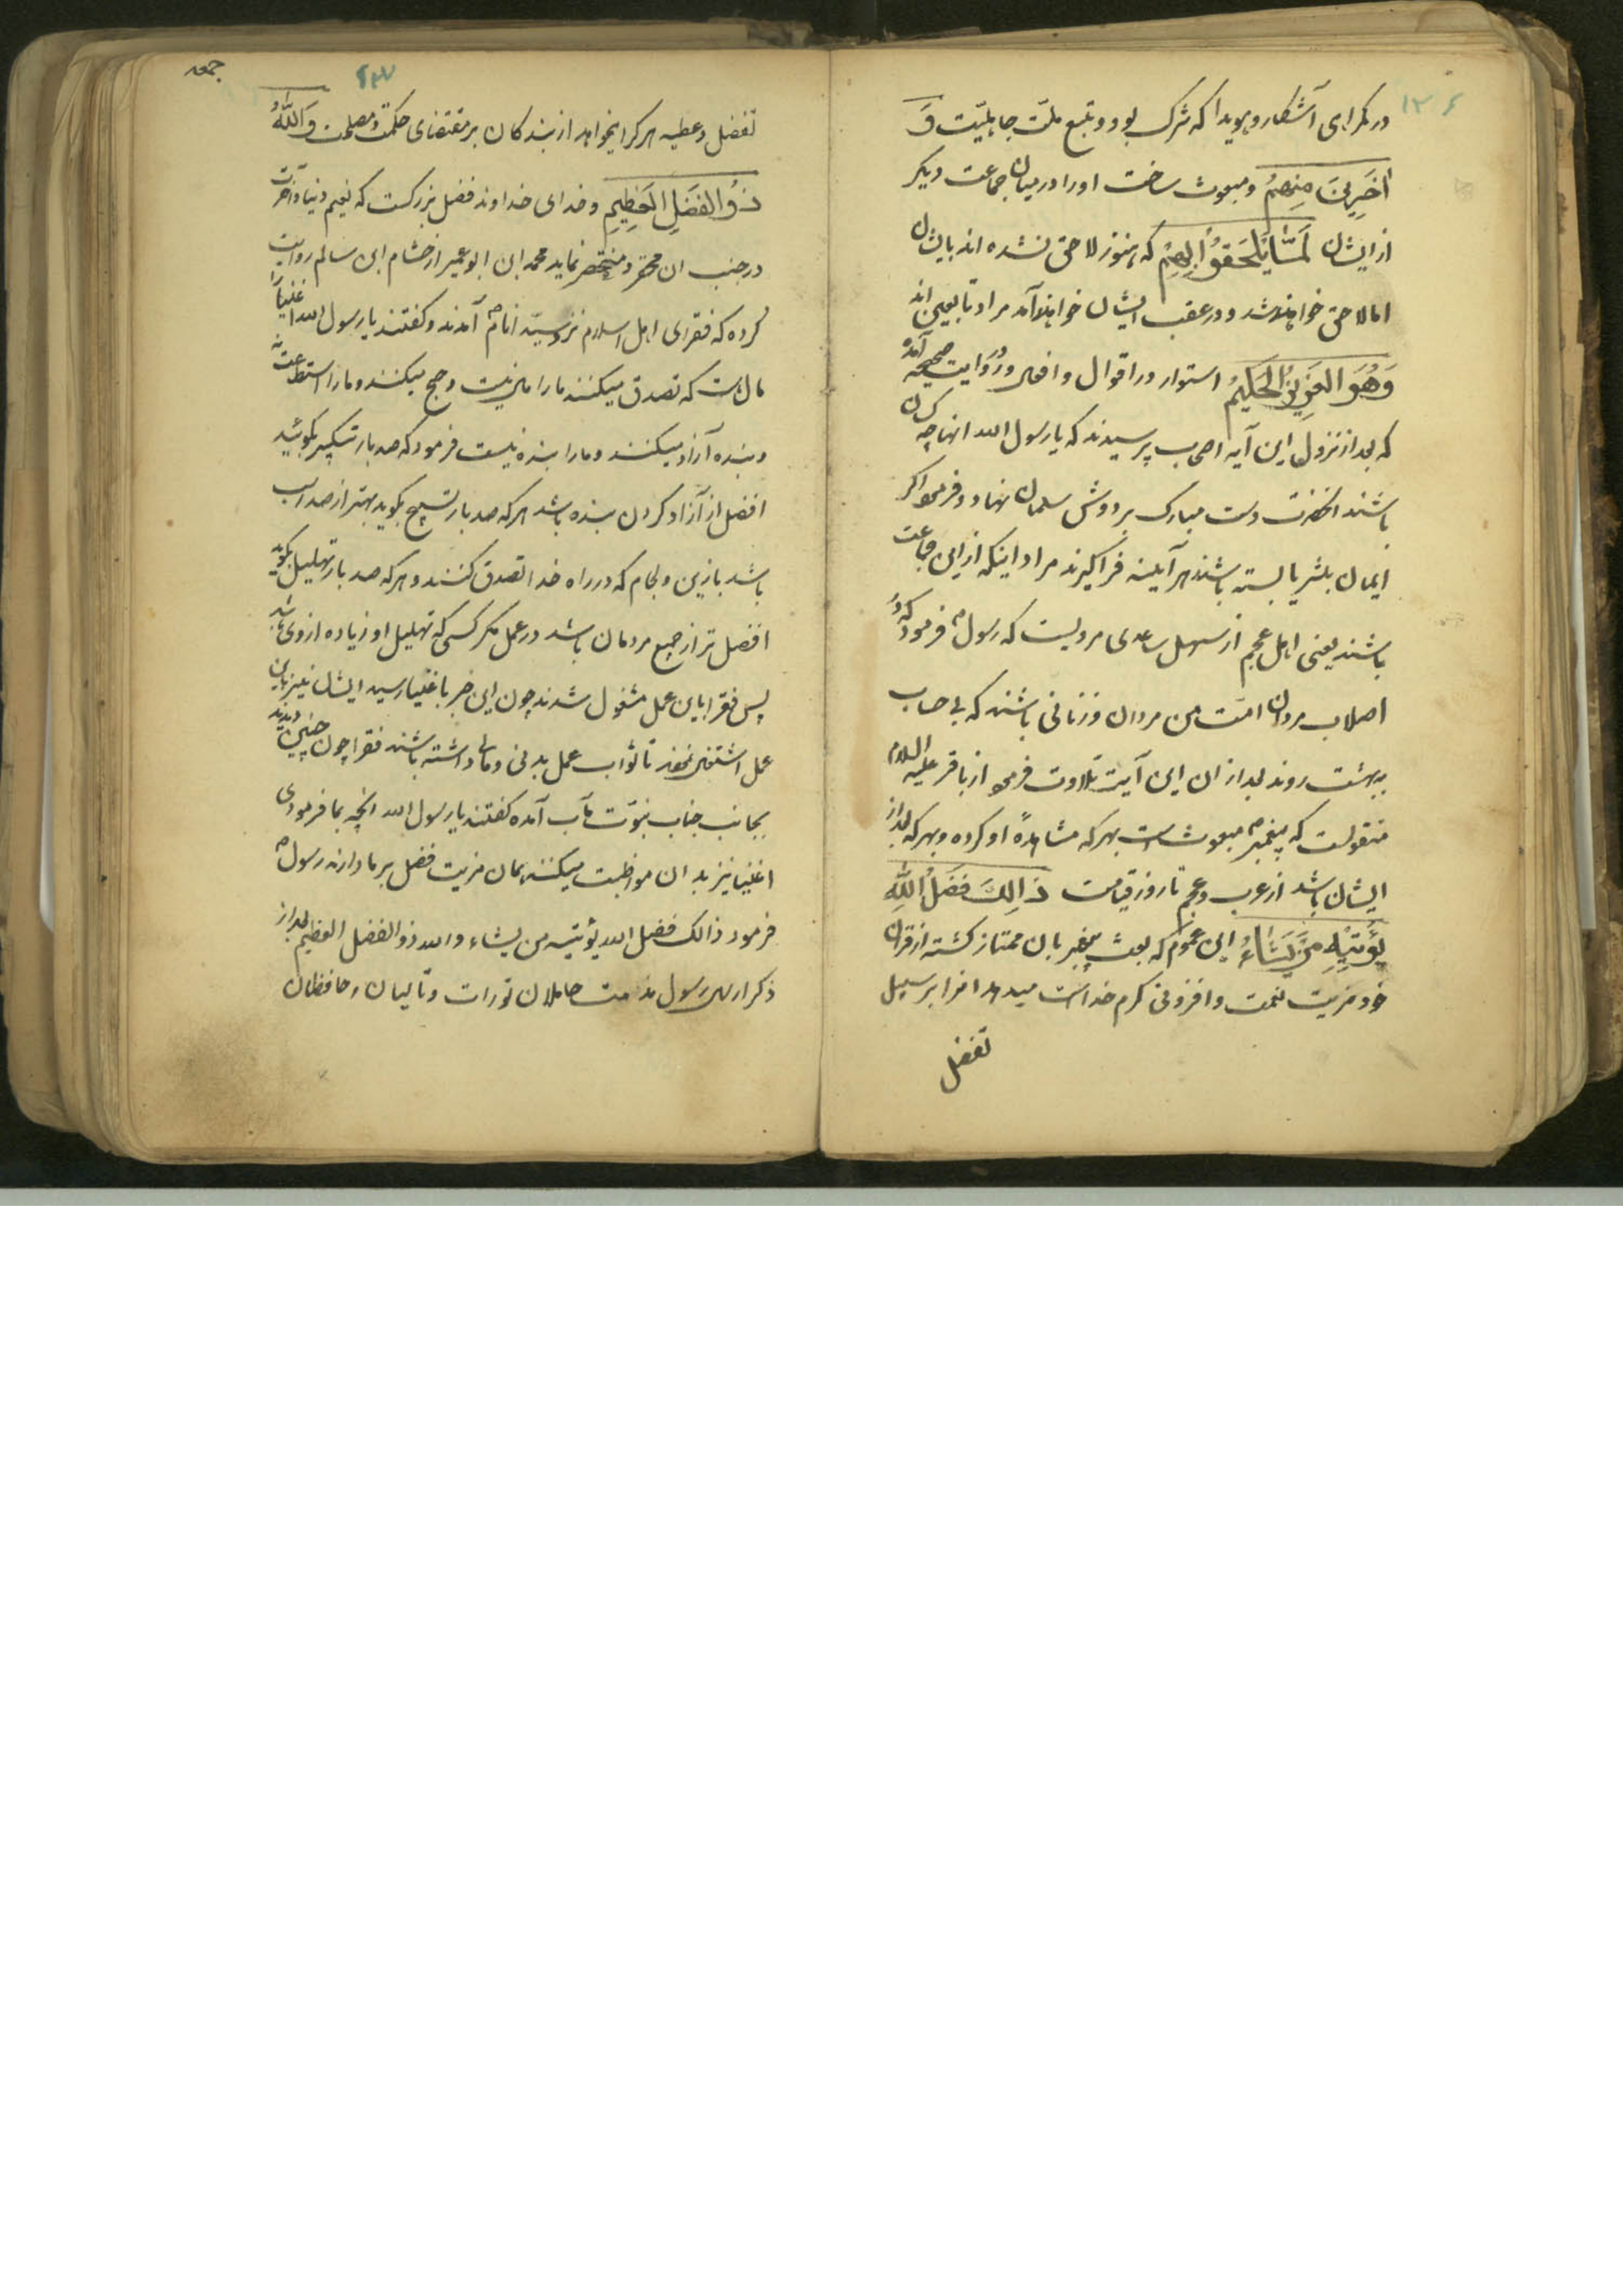 ۱۳۶
در گمراهی آشکار و هویدا که شرک بود و تبع ملّت جاهلیّت وَ
اٰخَرِینَ مِنهُمْ و مبعوث ساخت او را در میان جماعت دیگر
از ایشان لَمَّا یَلْحَقُوا بِهِمْ که هنوز لاحق نشده اند بایشان
اما لاحق خواهند شد و در عقب ایشان خواهند آمد مراد تابعین اند
وَهُوَ العَزِیزُ الحَکیمُ استوار در اقوال و افعال و در روایت صحیحه آمده
که بعد از نزول این آیه اصحاب پرسیدند که یا رسول الله انها چه کسان
باشند انحضرت دست مبارک بر دوش سلمان نهاد و فرمود اگر
ایمان بثریا بسته باشند هر آینه فراگیرند مراد اینکه از این جماعت
باشند یعنی اهل عجم از سهل ساعدی مرویست که رسول ص فرمود که در
اصلاب مردان امّت من مردان و زنانی باشند که بی حساب
ببهشت روند بعد از ان این آیت تلاوت فرمود از باقر علیه السلام
منقولست که پیغمبر ص مبعوث است بهر که مشاهدهٔ او کرده و بهر که بعد از
ایشان باشد از عرب و عجم تا روز قیامت ذَالِکَ فَضْلُ اللّٰهِ
یُؤْتِیْهِ مَن یَشَاءُ این عموم که بعث پیغمبر بان ممتاز گشته از قران
خود مزیت نعمت و افزونی کرم خداست میدهد انرا بر سبیل
تفضل
جمعه
تفضل و عطیه هر کرا میخواهد از بندکان بر مقتضای حکمت و مصلحت وَاللّٰهُ
ذُو الفَضلِ العَظِیمِ و خدای خداوند فضل بزرگست که نعیم دنیا و آخرت
در جنب ان محقر و مختصر نماید محمد ابن ابو عمیر از هشام ابن سالم روایت
کرده که فقرای اهل اسلام نزد سیّد انام ص آمدند و گفتند یا رسول الله اغنیا را
مال است که تصدق میکنند ما را مال نیست و حج میکنند و ما را استطاعت نه
و بنده آزاد میکنند و ما را بنده نیست فرمود که صد بار تکبیر بکوئید
افضل از آزاد کردن بنده باشد هر که صد بار تسبیح بکوید بهتر از صد اسب
باشد با زین و لجام که در راه خدا تصدق کنند و هر که صد بار تهلیل بکوید
افضل تر از جمیع مردمان باشد در عمل مکر کسی که تهلیل او زیاده از وی باشد
پس فقرا باین عمل مشغول شدند چون این خبر باغنیا رسید ایشان نیز باین
عمل اشتغال نمودند تا ثواب عمل بدنی و مالی داشته باشند فقرا چون چنین دیدند
بجانب جناب نبوّت مآب آمده گفتند یا رسول الله انچه بما فرمودی
اغنیا نیز بدان مواظبت میکنند همان مزیت فضل بر ما دارند رسول ص
فرمود ذالک فضل الله یؤتیه من یشاء والله ذو الفضل العظیم بعد از
ذکر ارسال رسول مذمت حاملان تورات و تالیان و حافظان